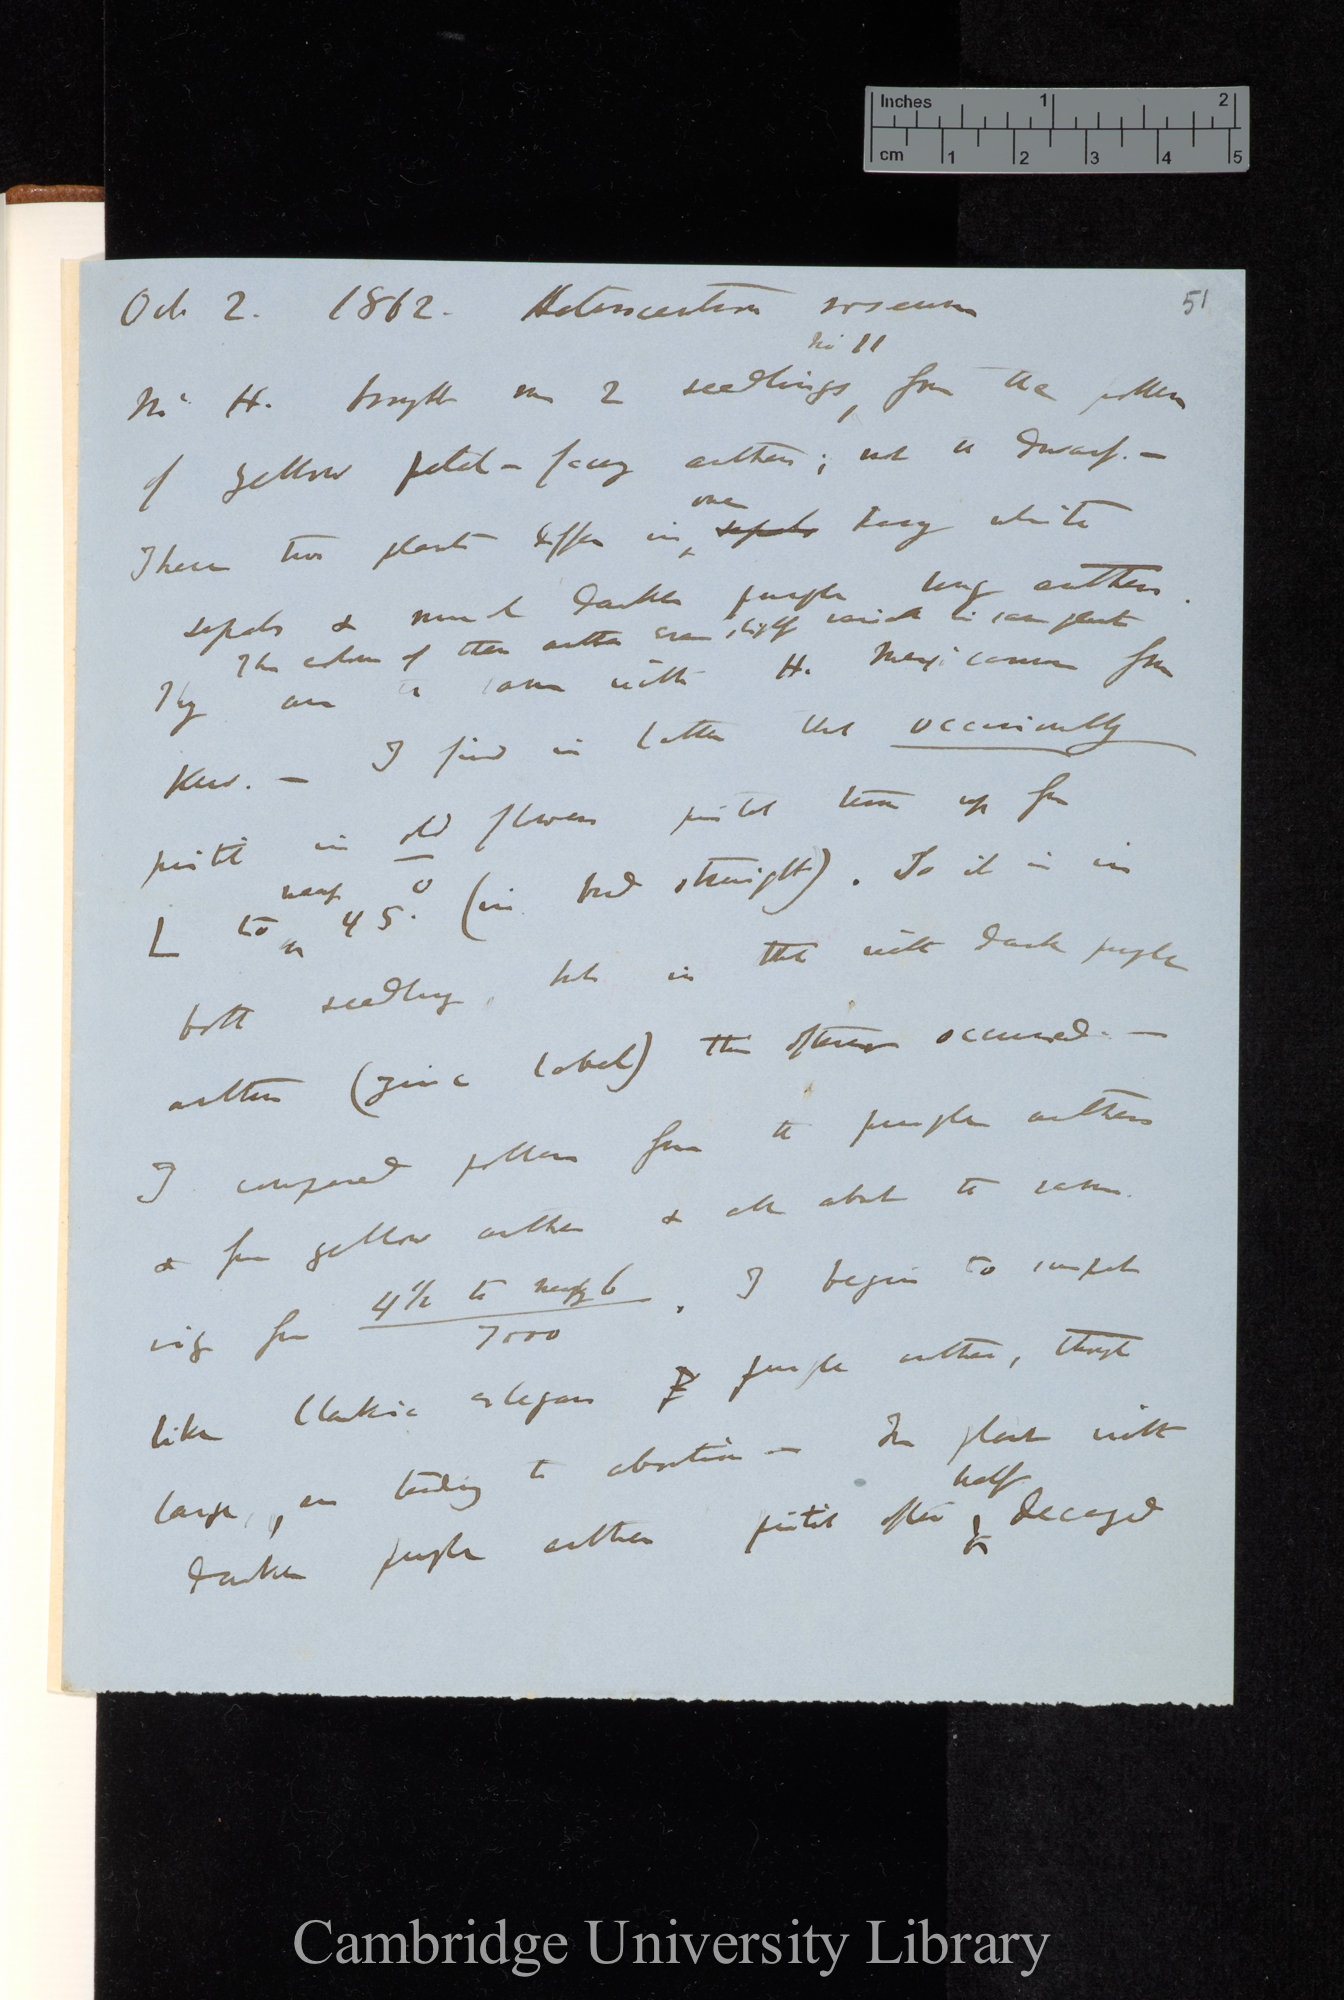 Inches 1 2
cm 1 2 3 4 5
51
Oct 2. 1862. Heterocentron roseum
Mr H. brought me 2 seedlings, from the pollen
of yellow petal-facing anthers; not a dwarf. —
These two plants differ in one sepals having white
sepals & much darker purple long anthers.
The colour of these anthers even slightly variable in same plant
They are the same with H. Mexicanum from
Kew. — I find in latter that occasionally
pistil in old flowers pistil turn up from
L to nearly 45°. (in bud straight). So it is in
both seedlings, but in that with dark purple
anthers (zinc label) this oftener occurred. —
I compared pollen from the purple anthers
& from yellow anthers & all about the same
size from 4½ to nearly 6 / 7000. I begin to suspect
like Clarkia elegans purple anthers, though
large, are tending to abortion — In plant with
darker purple anthers pistil after half decayed
Cambridge University Library